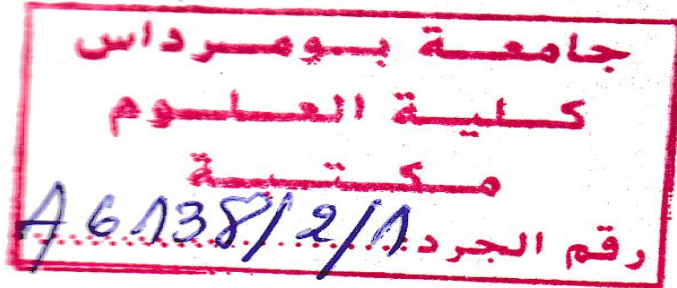 جامعة بومرداس
كلية العلوم
مكتبة
رقم الجرد: A 6138/2/1